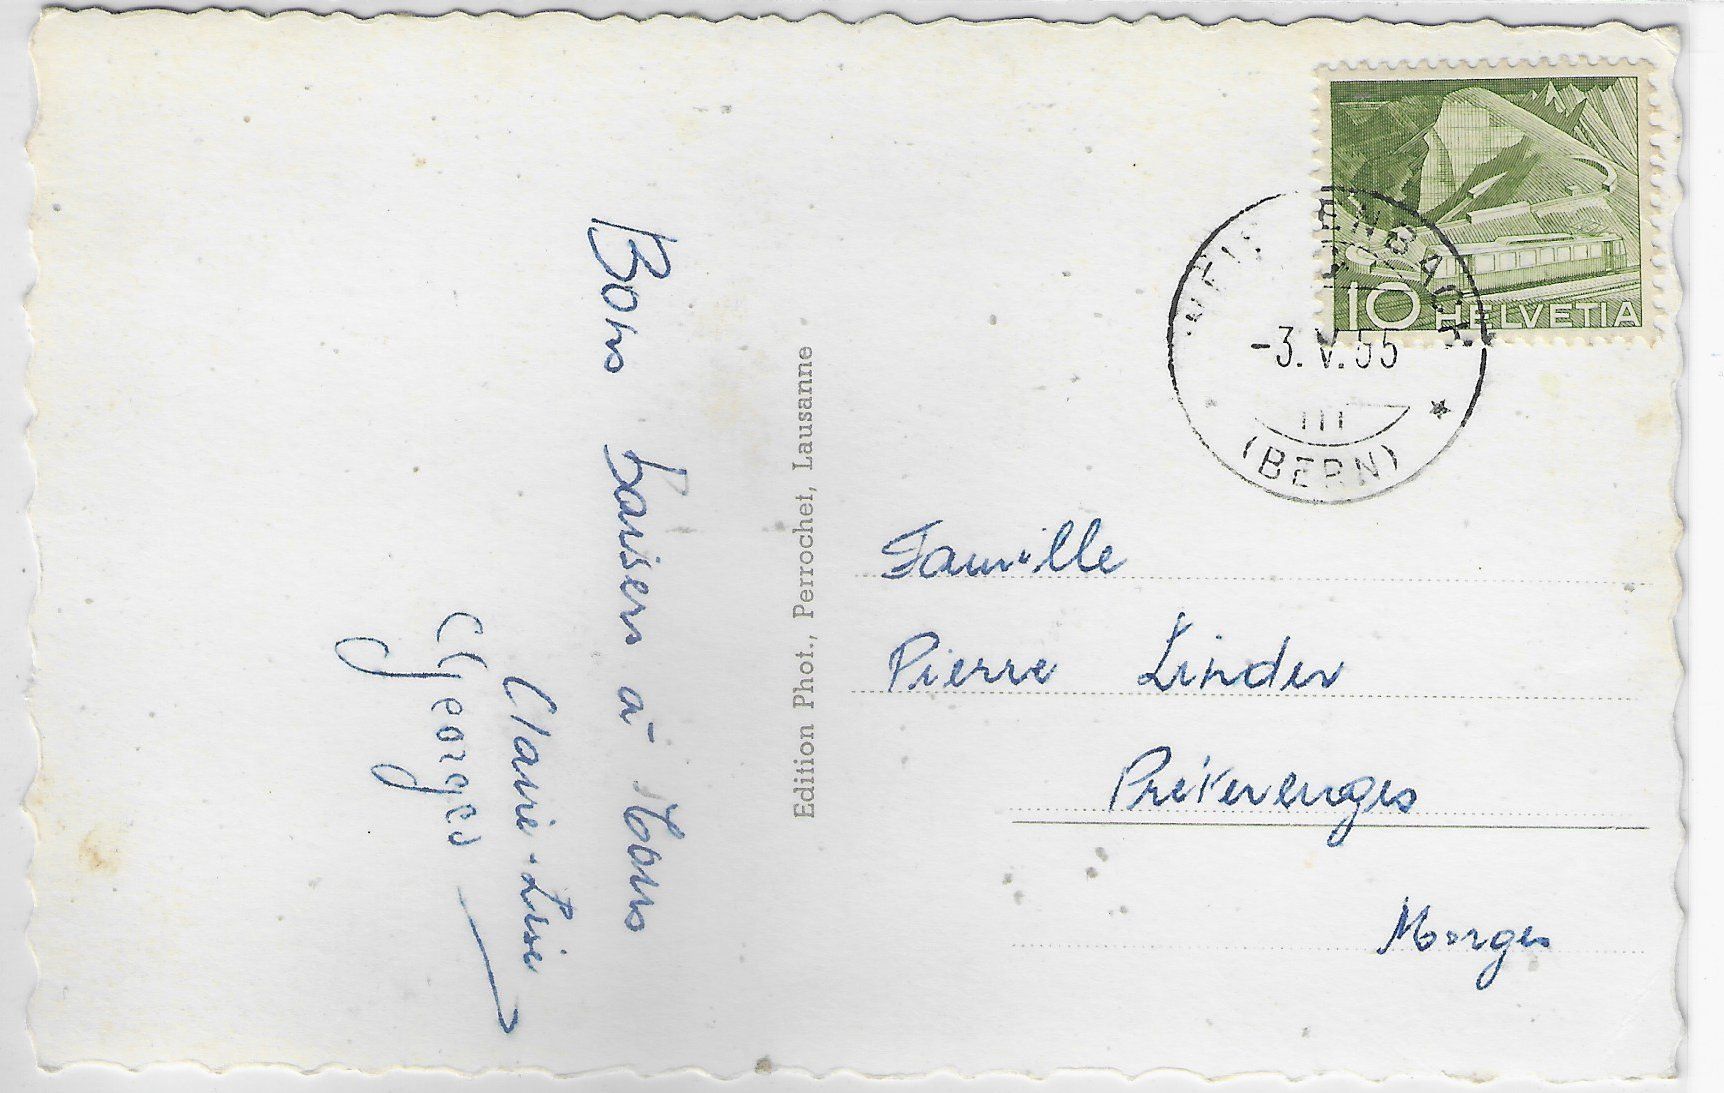 Bons baisers à tous
Claire-Lise
Georges
Edition Phot., Perrochet, Lausanne
10 HELVETIA
-3.V.55
III
(BERN)
Famille
Pierre Linder
Préverenges
Morges